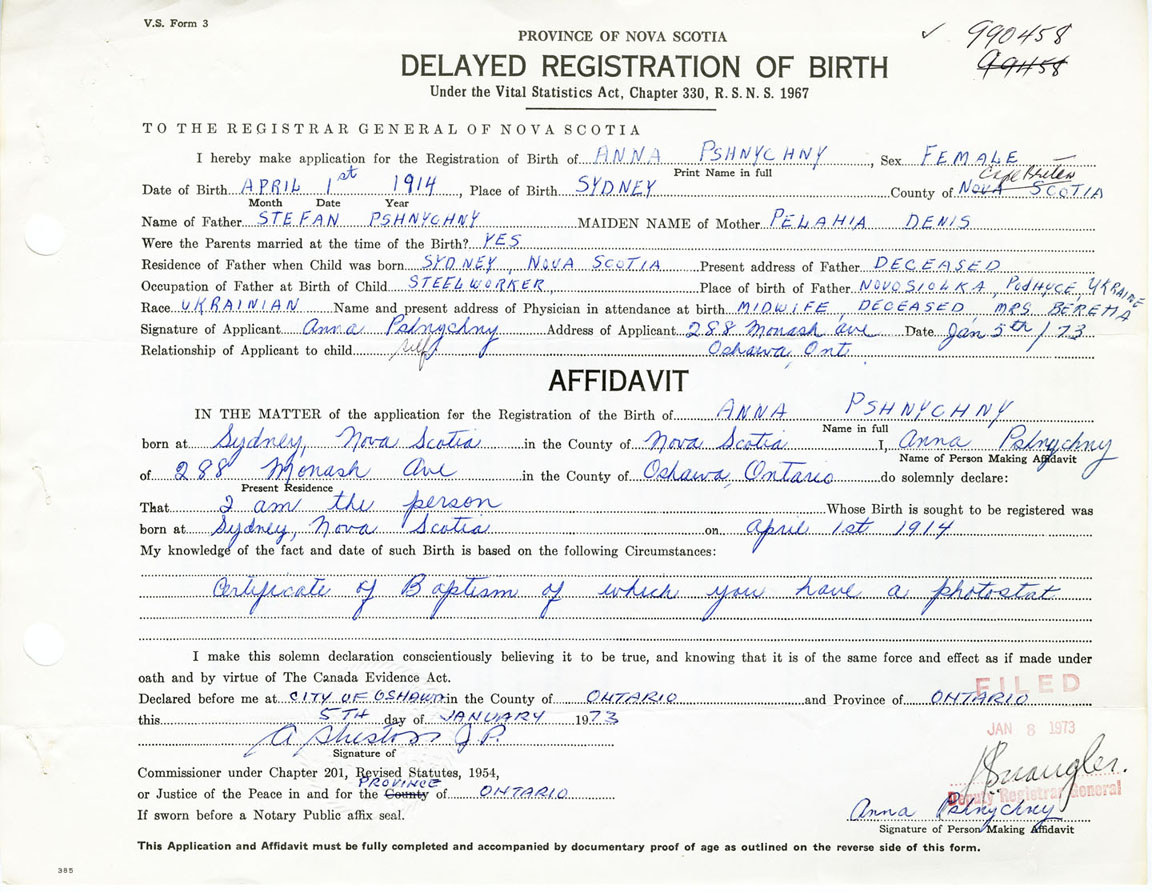 V.S. Form 3
✓ 990458
99H58
PROVINCE OF NOVA SCOTIA
DELAYED REGISTRATION OF BIRTH
Under the Vital Statistics Act, Chapter 330, R. S. N. S. 1967
TO THE REGISTRAR GENERAL OF NOVA SCOTIA
I hereby make application for the Registration of Birth of ANNA PSHNYCHNY, Sex FEMALE
Print Name in full
Cape Breton
Date of Birth APRIL 1st 1914, Place of Birth SYDNEY County of NOVA SCOTIA
Month Date Year
Name of Father STEFAN PSHNYCHNY MAIDEN NAME of Mother PELAHIA DENIS
Were the Parents married at the time of the Birth? YES
Residence of Father when Child was born SYDNEY, NOVA SCOTIA Present address of Father DECEASED
Occupation of Father at Birth of Child STEELWORKER, Place of birth of Father NOVOSIOLKA, PODHYCE, UKRAINE
Race UKRAINIAN Name and present address of Physician in attendance at birth MIDWIFE, DECEASED, MRS. BEREMA
Signature of Applicant Anna Pshnychny Address of Applicant 288 Monash ave Date Jan 5th /73
Relationship of Applicant to child self Oshawa, Ont.
AFFIDAVIT
IN THE MATTER of the application for the Registration of the Birth of ANNA PSHNYCHNY
Name in full
born at Sydney, Nova Scotia in the County of Nova Scotia I, Anna Pshnychny
Name of Person Making Affidavit
of 288 Monash Ave in the County of Oshawa, Ontario do solemnly declare:
Present Residence
That I am the person Whose Birth is sought to be registered was
born at Sydney, Nova Scotia on April 1st 1914
My knowledge of the fact and date of such Birth is based on the following Circumstances:
Certificate of Baptism of which you have a photostat
I make this solemn declaration conscientiously believing it to be true, and knowing that it is of the same force and effect as if made under
oath and by virtue of The Canada Evidence Act.
FILED
Declared before me at CITY OF OSHAWA in the County of ONTARIO and Province of ONTARIO
this 5TH day of JANUARY 1973
JAN 8 1973
J.P.
Signature of
Commissioner under Chapter 201, Revised Statutes, 1954,
PROVINCE
or Justice of the Peace in and for the County of ONTARIO
Deputy Registrar General
If sworn before a Notary Public affix seal.
Anna Pshnychny
Signature of Person Making Affidavit
This Application and Affidavit must be fully completed and accompanied by documentary proof of age as outlined on the reverse side of this form.
385